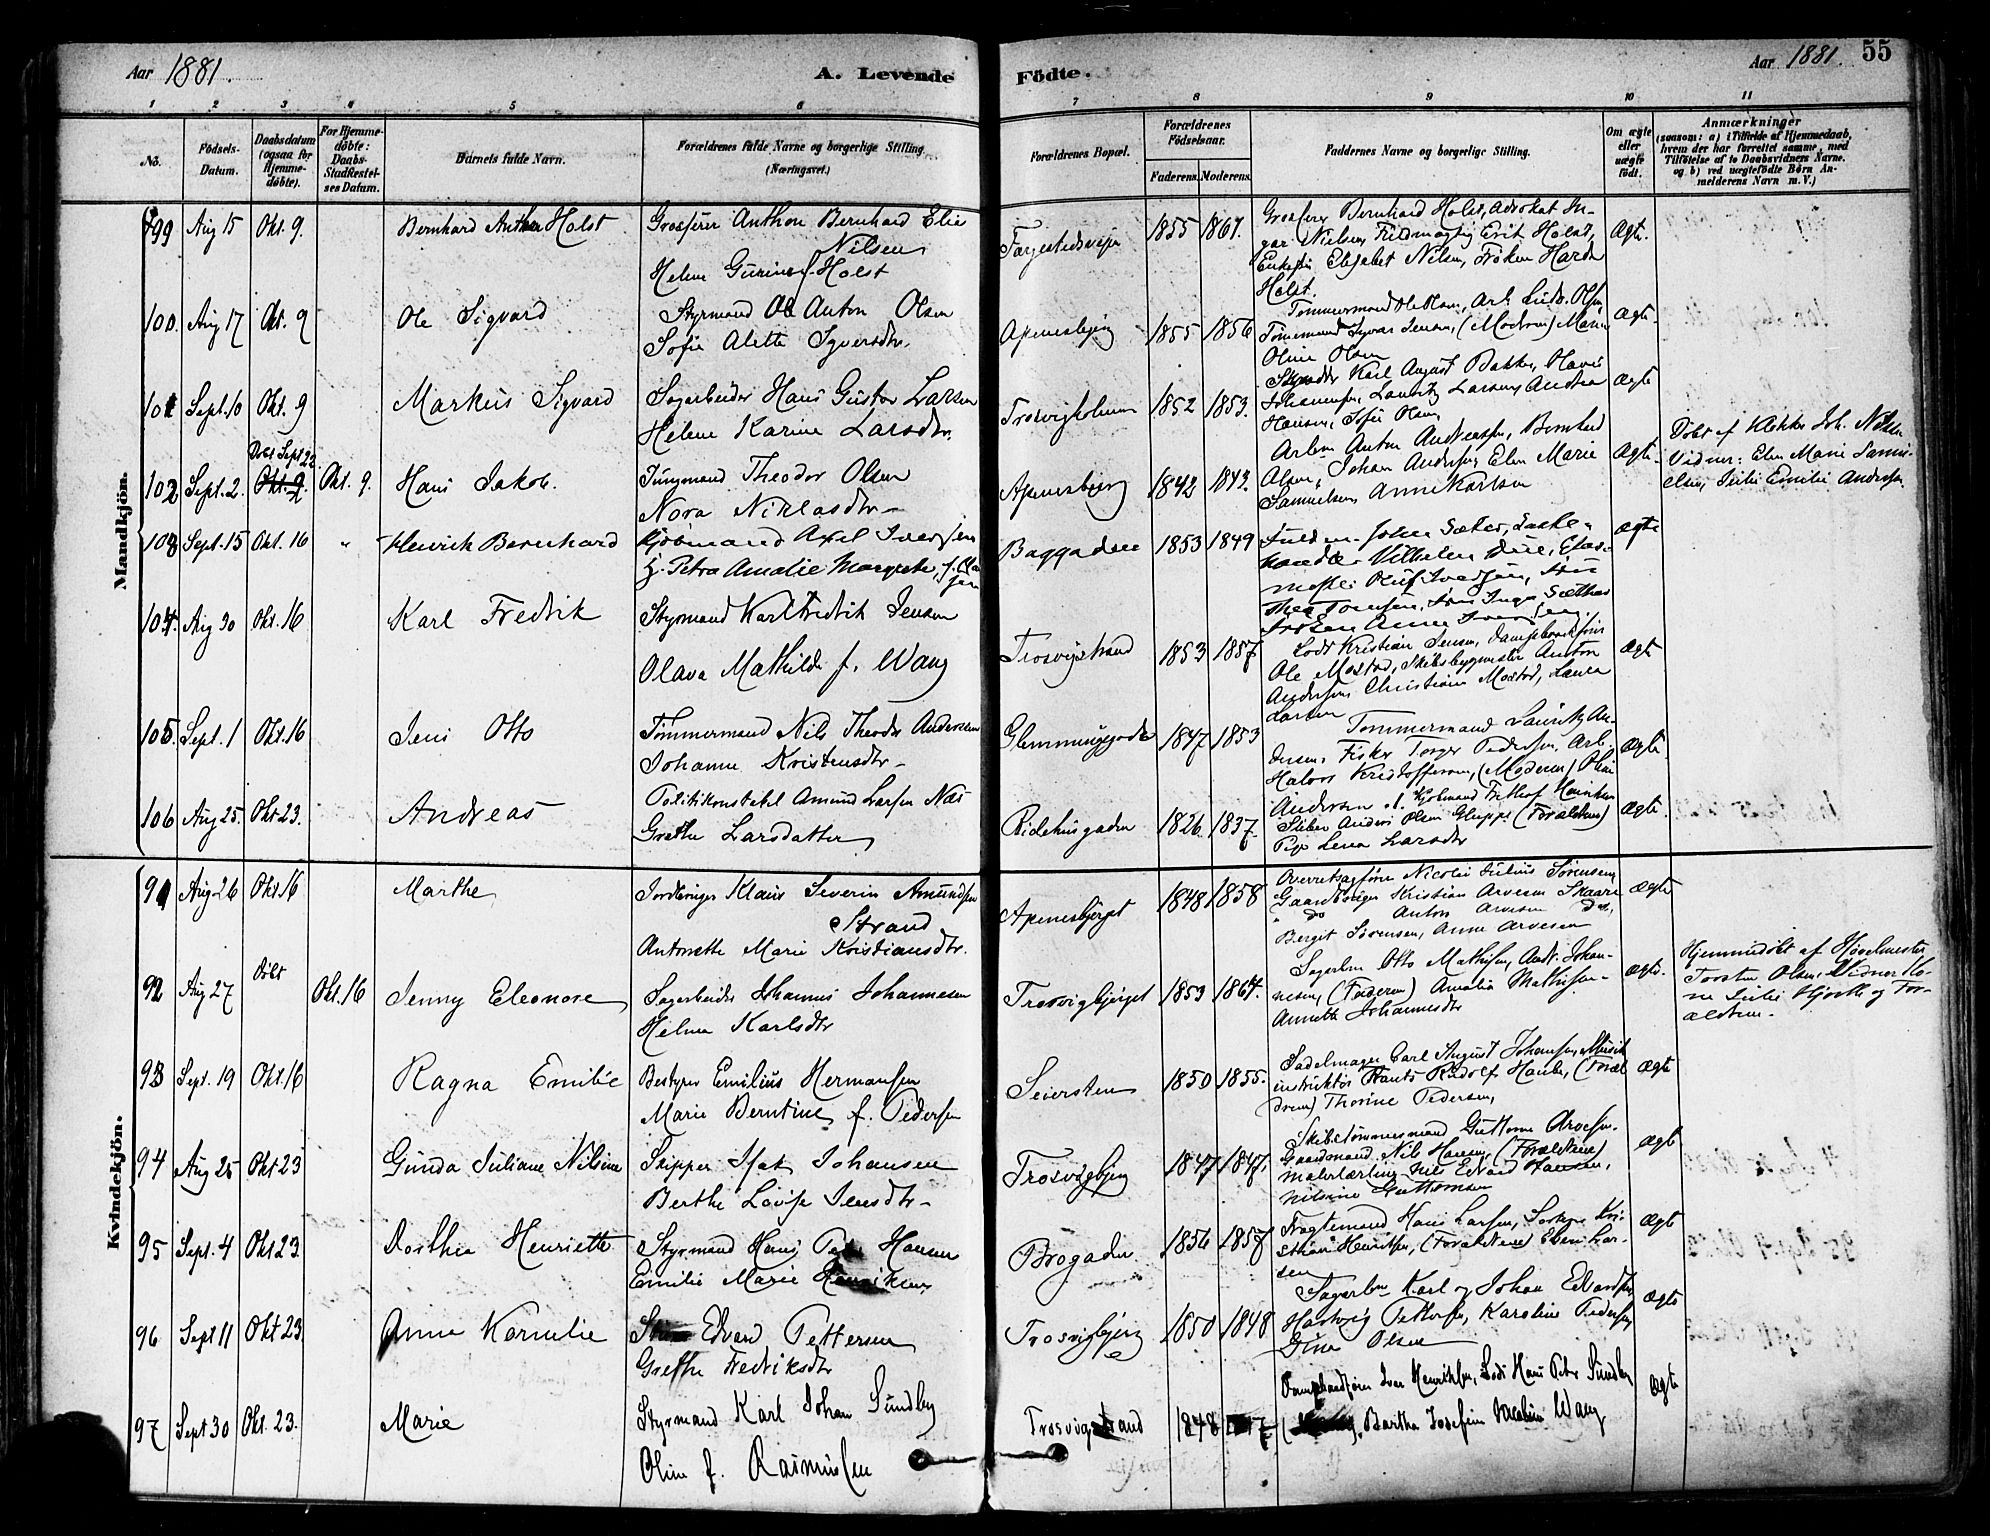 Aar 1881.
A. Levende
Födte.
Aar 1881.
55
1 2 3 4 5 6 7 8 9 10 11
No.
Födsels-Datum.
Daabsdatum (ogsaa for Hjemme-döbte).
For Hjemme-döbte: Daabs-Stadfæstel-ses Datum.
Barnets fulde Navn.
Forældrenes fulde Navne og borgerlige Stilling (Næringsvei.)
Forældrenes Bopæl.
Forældrenes Födselsaar.
Faderens. Moderens.
Faddernes Navne og borgerlige Stilling.
Om ægte eller uægte födt.
Anmærkninger
(saasom: a) i Tilfælde af Hjemmedaab, hvem der har forrettet samme, med Tilföielse af to Daabsvidners Navne. og b) ved uægtefödte Börn An-melderens Navn m.V.)
Mandkjön.
99 Aug 15 Okt. 9. Bernhard Anthon Holst
Grosserer Anthon Bernhard Elie Nilsen
Helene Gurine f. Holst
1855 1861.
Grosserer Bernhard Holst, Advokat
Nielsen, Fuldmægtig Erik Holst,
Elisabet Nilsen, Fröken
Holst.
Ægte.
100. Aug 17 Okt. 9 Ole Sigvard
Styrmand Ole Anton Olsen
Sofie Alette Syversdtr.
Apenesbjerg 1855 1856
Tömmermand Ole Olsen, Arb. Ludv. Olsen
Tömmermand Syver Jensen, (Moderen) Maren
Oline Olsen
Ægte.
101 Sept. 10 Okt. 9 Markus Sigvard
Sagarbeider Hans Gustav Larsen
Helene Karine Larsdtr.
Trosvigholmen 1852 1853.
Karl August Bakke,
Johannesen, Lauritz Larsen, Andrea
Hansen, Sofie Olsen
Ægte
102 Sept. 2. Döbt Sept 22 Okt. 9. Okt. 9. Hans Jakob.
Theodor Olsen
Nora Niklasdtr.
Apenesbjerg 1842 1843.
Arbm Anton Andreassen, Bernhard
Olsen, Johan Andersen, Elen Marie
Samuelsen, Anne Karlsen
Ægte.
Döbt af Klokker Joh. Nilsen
Vidner: Elen Marie Samu-
elsen, Julie Emilie Andersen.
103 Sept. 15 Okt. 16 " Henrich Bernhard
Kjöbmand Axel Iversen
h. Petra Amalie Margrete, f.
Baggaden 1853 1849
Johan Sæter,
Vilhelm
Oluf Iversen,
Inga Sæther
Fröken Anna Iversen.
Ægte
104. Aug 30 Okt. 16 Karl Fredrik
Styrmand Karl Fredrik Jensen
Olava Mathilde f. Wang
Trosvigstrand 1853 1857
Lods Kristian Jensen, Dampbaadförer
Ole Mostad, Skibsbygmester Anton
Andersen, Christiane Mostad, Laura
Larsen
Ægte
105. Sept. 1 Okt. 16 Jens Otto
Tömmermand Nils Theodor Andersen
Johanne Kristensdtr.
Glemminggade 1847 1853
Tömmermand Lauritz An-
dersen, Fisker Torger Pedersen, Arb.
Halvor Kristofferson, (Moderen) Oline
Andersen
Ægte
106 Aug 25. Okt 23. Andreas
Politikonstabel Amund Larsen Næs
Grethe Larsdatter
Ridehusgaden 1826 1837.
Kjöbmand Frithof Henriksen
Anders Olsen Gluppe (Forældrene)
Pige Lena Larsdtr
Ægte
Kvindekjön.
91 Aug 26 Okt 16 Marthe
Jordbruger Klaus Severin Amundsen
Strand
Antonette Marie Kristiansdtr.
Apenesbjerget 1848 1858
Overretssagförer Nicolai Julius Sörensen,
Gaardbruger Kristian Arvesen Skaare
" do Anton Arvesen do,
Bergit Sörensen, Anne Arvesen
Ægte
92 Aug 27 Döbt Okt. 16 Jenny Eleonore
Sagarbeider Johannes Johannesen
Helene Karlsdtr
Trosvigbjerget 1853 1864.
Sagarbm Otto Mathisen, Andr. Johan-
nesen, (Faderen) Amalia Mathisen
Annette Johannesdtr
Ægte.
Hjemmedöbt af Hövelmester
Torsten Olsen, Vidner Ko-
ne Julie Hjorth og For-
ældrene.
93 Sept. 19 Okt. 16 Ragna Emilie
Bestyrer Emilius Hermansen
Marie Berntine f. Pedersen
Seiersten 1850 1855.
Sadelmager Carl August Johansen, Musik
instruktör Frants Rudolf Haube, (Foræl
drene) Thorine Pedersen,
Ægte
94 Aug 25 Okt 23 Gunda Juliane Nilsine
Skipper Isak Johansen
Berthe Lovise Jensdtr.
Trosvigbjerg 1847 1847.
Skibstömmermand Guttorm Arvesen.
Gaardmand Nils Hansen, (Forældrene)
Malerlærling Nils Edvard Hansen,
Nilsine Guttormsen
Ægte
95 Sept. 4 Okt 23. Dorthea Henriette
Styrmand Hans Peder Hansen
Emilie Marie Henriksen
Brogaden 1856 1857
Fragtemand Hans Larsen, Kri-
stian Henriksen, (Forældrene) Lar-
sen
Ægte
96 Sept 11 Okt 23. Anne Kornelie
Edvard Pettersen
Grethe Fredriksdtr
Trosvigbjerg 1850 1848
Sagarbm Karl og Johan Edvardsen,
Hartvig Pettersen, Karoline Pedersen,
Gine Olsen
Ægte
97 Sept 30 Okt. 23. Marie
Styrmand Karl Johan Sundby
Oline f. Rasmussen
Trosvigstrand 1848
Dampbaadförer Ivar Henriksen, Lods Hans Peter Sundby
Bartha Josefine Jacobine Wang
Ægte